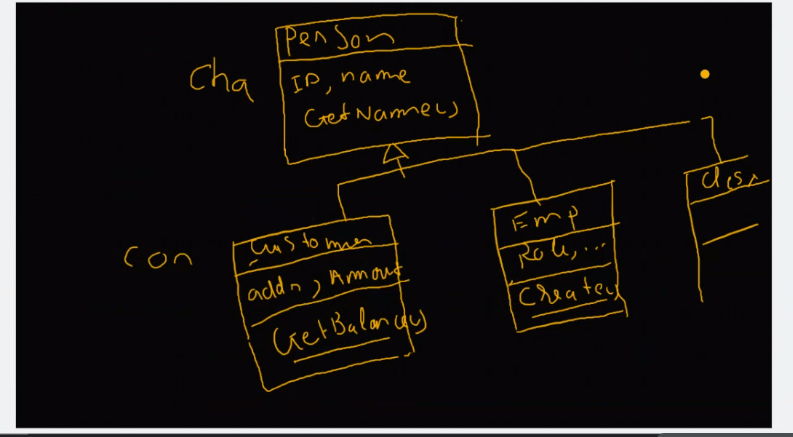 Person
Cha
ID, name
GetName()
Con
Customer
addr, Amout
GetBalance()
Emp
Role, ...
Create()